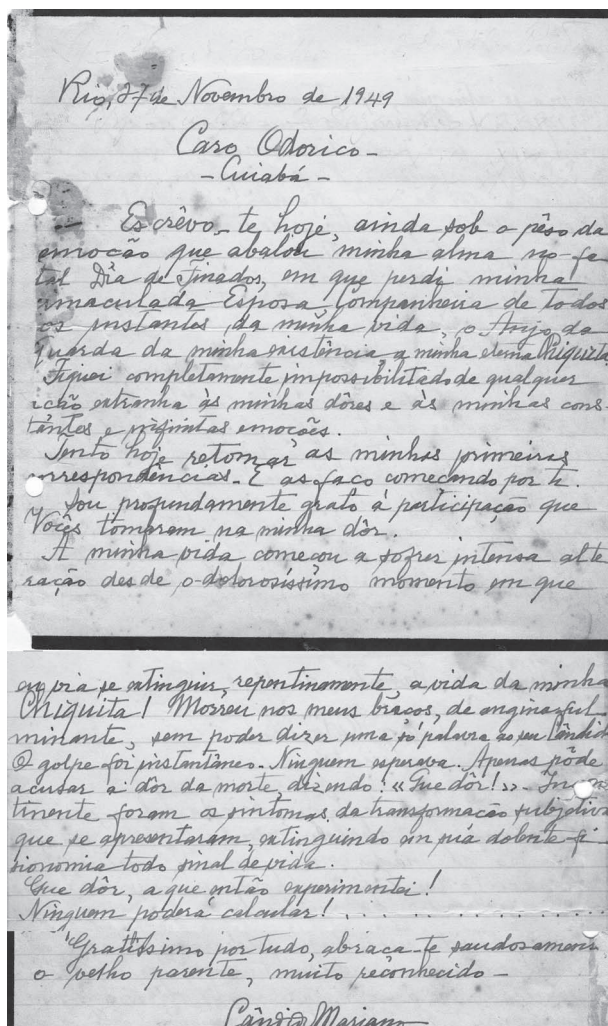 Rio, 27 de Novembro de 1949
Caro Odorico -
- Cuiabá -
Escrêvo-te hoje, ainda sob o pêso da
emoção que abalou minha alma no fa-
tal Dia de Finados, em que perdi minha
imaculada Esposa, Companheira de todos
os instantes da minha vida, o Anjo da
Guarda da minha existência, a minha eterna Chiquita.
Fiquei completamente impossibilitado de qualquer
acão extranha às minhas dôres e às minhas cons-
tantes e infinitas emoções.
Tento hoje retomar as minhas primeiras
correspondências. E as faço começando por ti.
Sou profundamente grato à participação que
Vocês tomaram na minha dôr.
A minha vida começou a sofrer intensa alte
ração desde o dolorosíssimo momento em que
eu via se extinguir, repentinamente, a vida da minha
Chiquita! Morreu nos meus braços, de angina ful-
minante, sem poder dizer uma só palavra ao seu Cândido
O golpe foi instantâneo. Ninguem esperava. Apenas pôde
acusar a dôr da morte, dizendo: «Que dôr!». Incon
tinente foram os sintomas da transformação subjetiva
que se apresentaram, extinguindo em sua dolente fi
sionomia todo sinal de vida.
Que dôr, a que então experimentei!
Ninguem poderá calcular! . . . . . . . . . . . . . .
Gratíssimo por tudo, abraça-te saudosamente
o velho parente, muito reconhecido -
Cândido Mariano